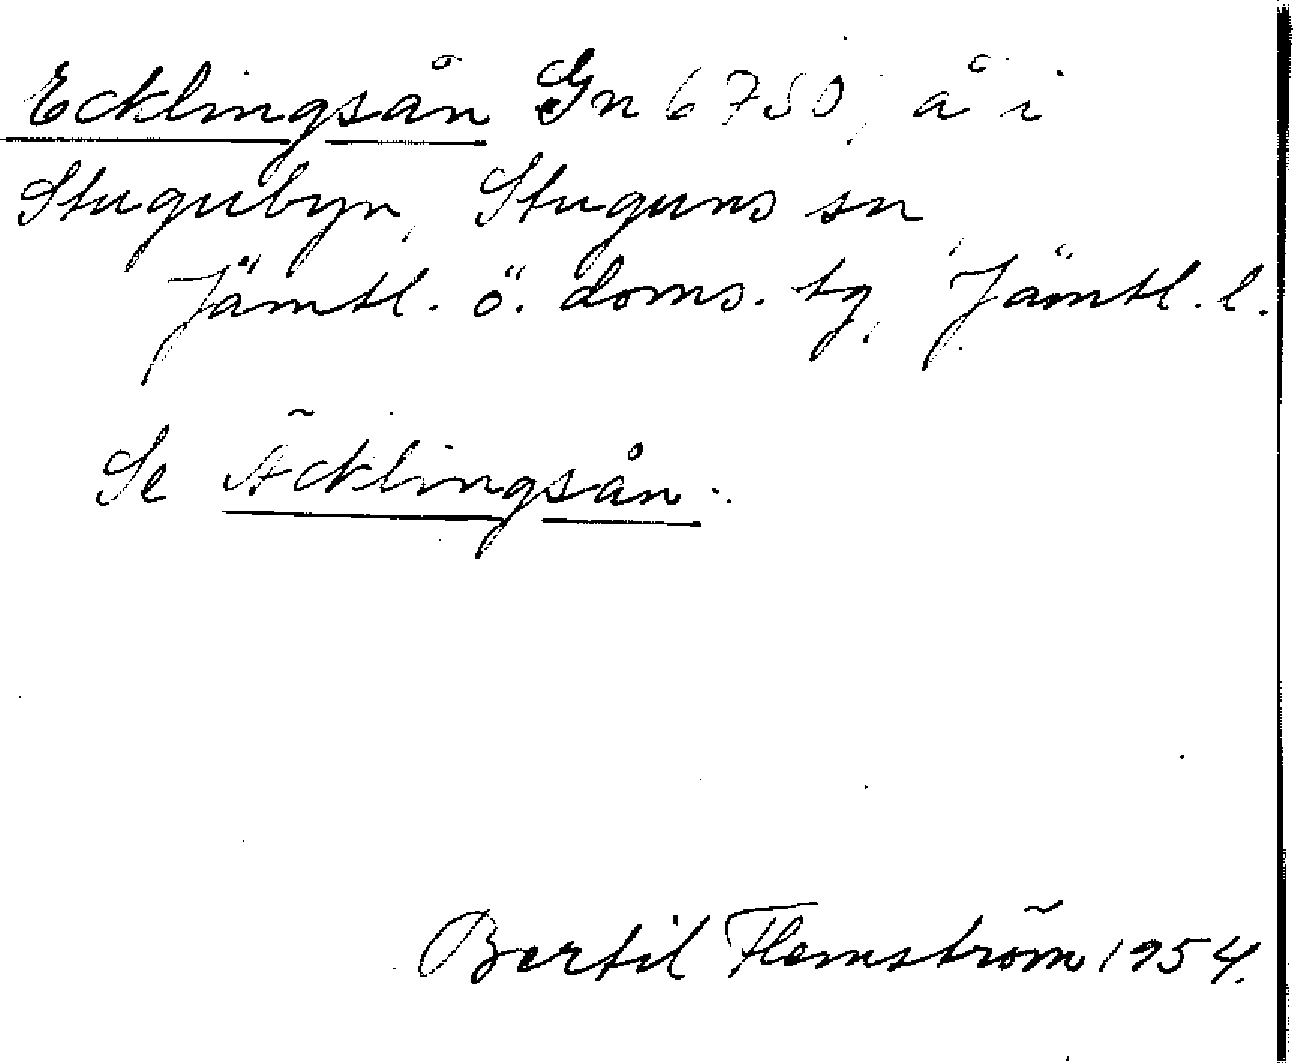 Ecklingsån Gn 6750, å i
Stugubyn, Stuguns sn,
Jämtl. ö. doms. tg, Jämtl. l.
Se Äcklingsån.
Bertil Flemström 1954.